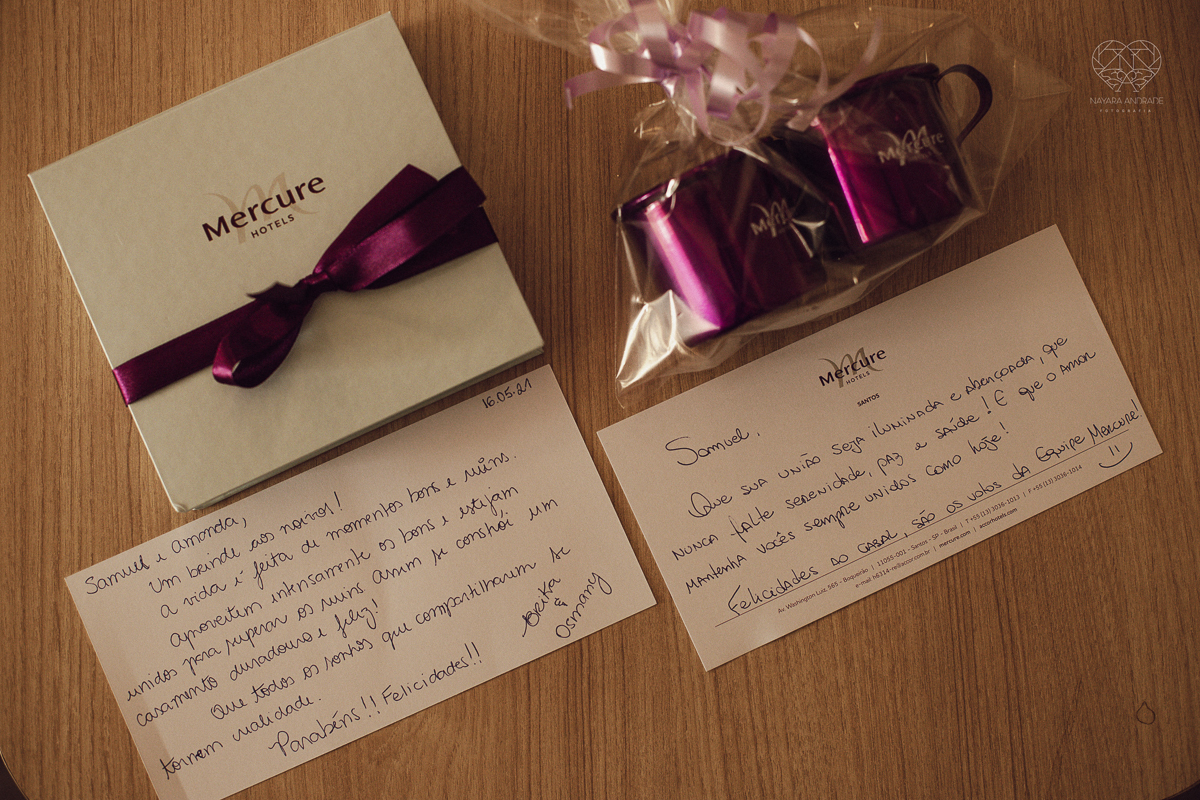 Mercure
HOTELS
Mercure
Mercure
NAYARA ANDRADE
FOTOGRAFIA
16.05.21
Samuel e Amanda,
Um brinde aos noivos!
A vida é feita de momentos bons e ruins.
Aproveitem intensamente os bons e estejam
unidos para superar os ruins assim se constrói um
casamento duradouro e feliz!
Que todos os sonhos que compartilharem se
tornem realidade.
Parabéns!! Felicidades!!
&
Osmany
Mercure
HOTELS
SANTOS
Samuel,
Que sua união seja iluminada e abençoada, que
nunca falte serenidade, paz e saúde! E que o amor
mantenha vocês sempre unidos como hoje!
Felicidades ao casal, são os votos da Equipe Mercure!
Av. Washington Luiz, 565 - Boqueirão | 11055-001 - Santos - SP - Brasil | T +55 (13) 3036-1013 | F +55 (13) 3036-1014
e-mail h6314-re@accor.com.br | mercure.com | accorhotels.com